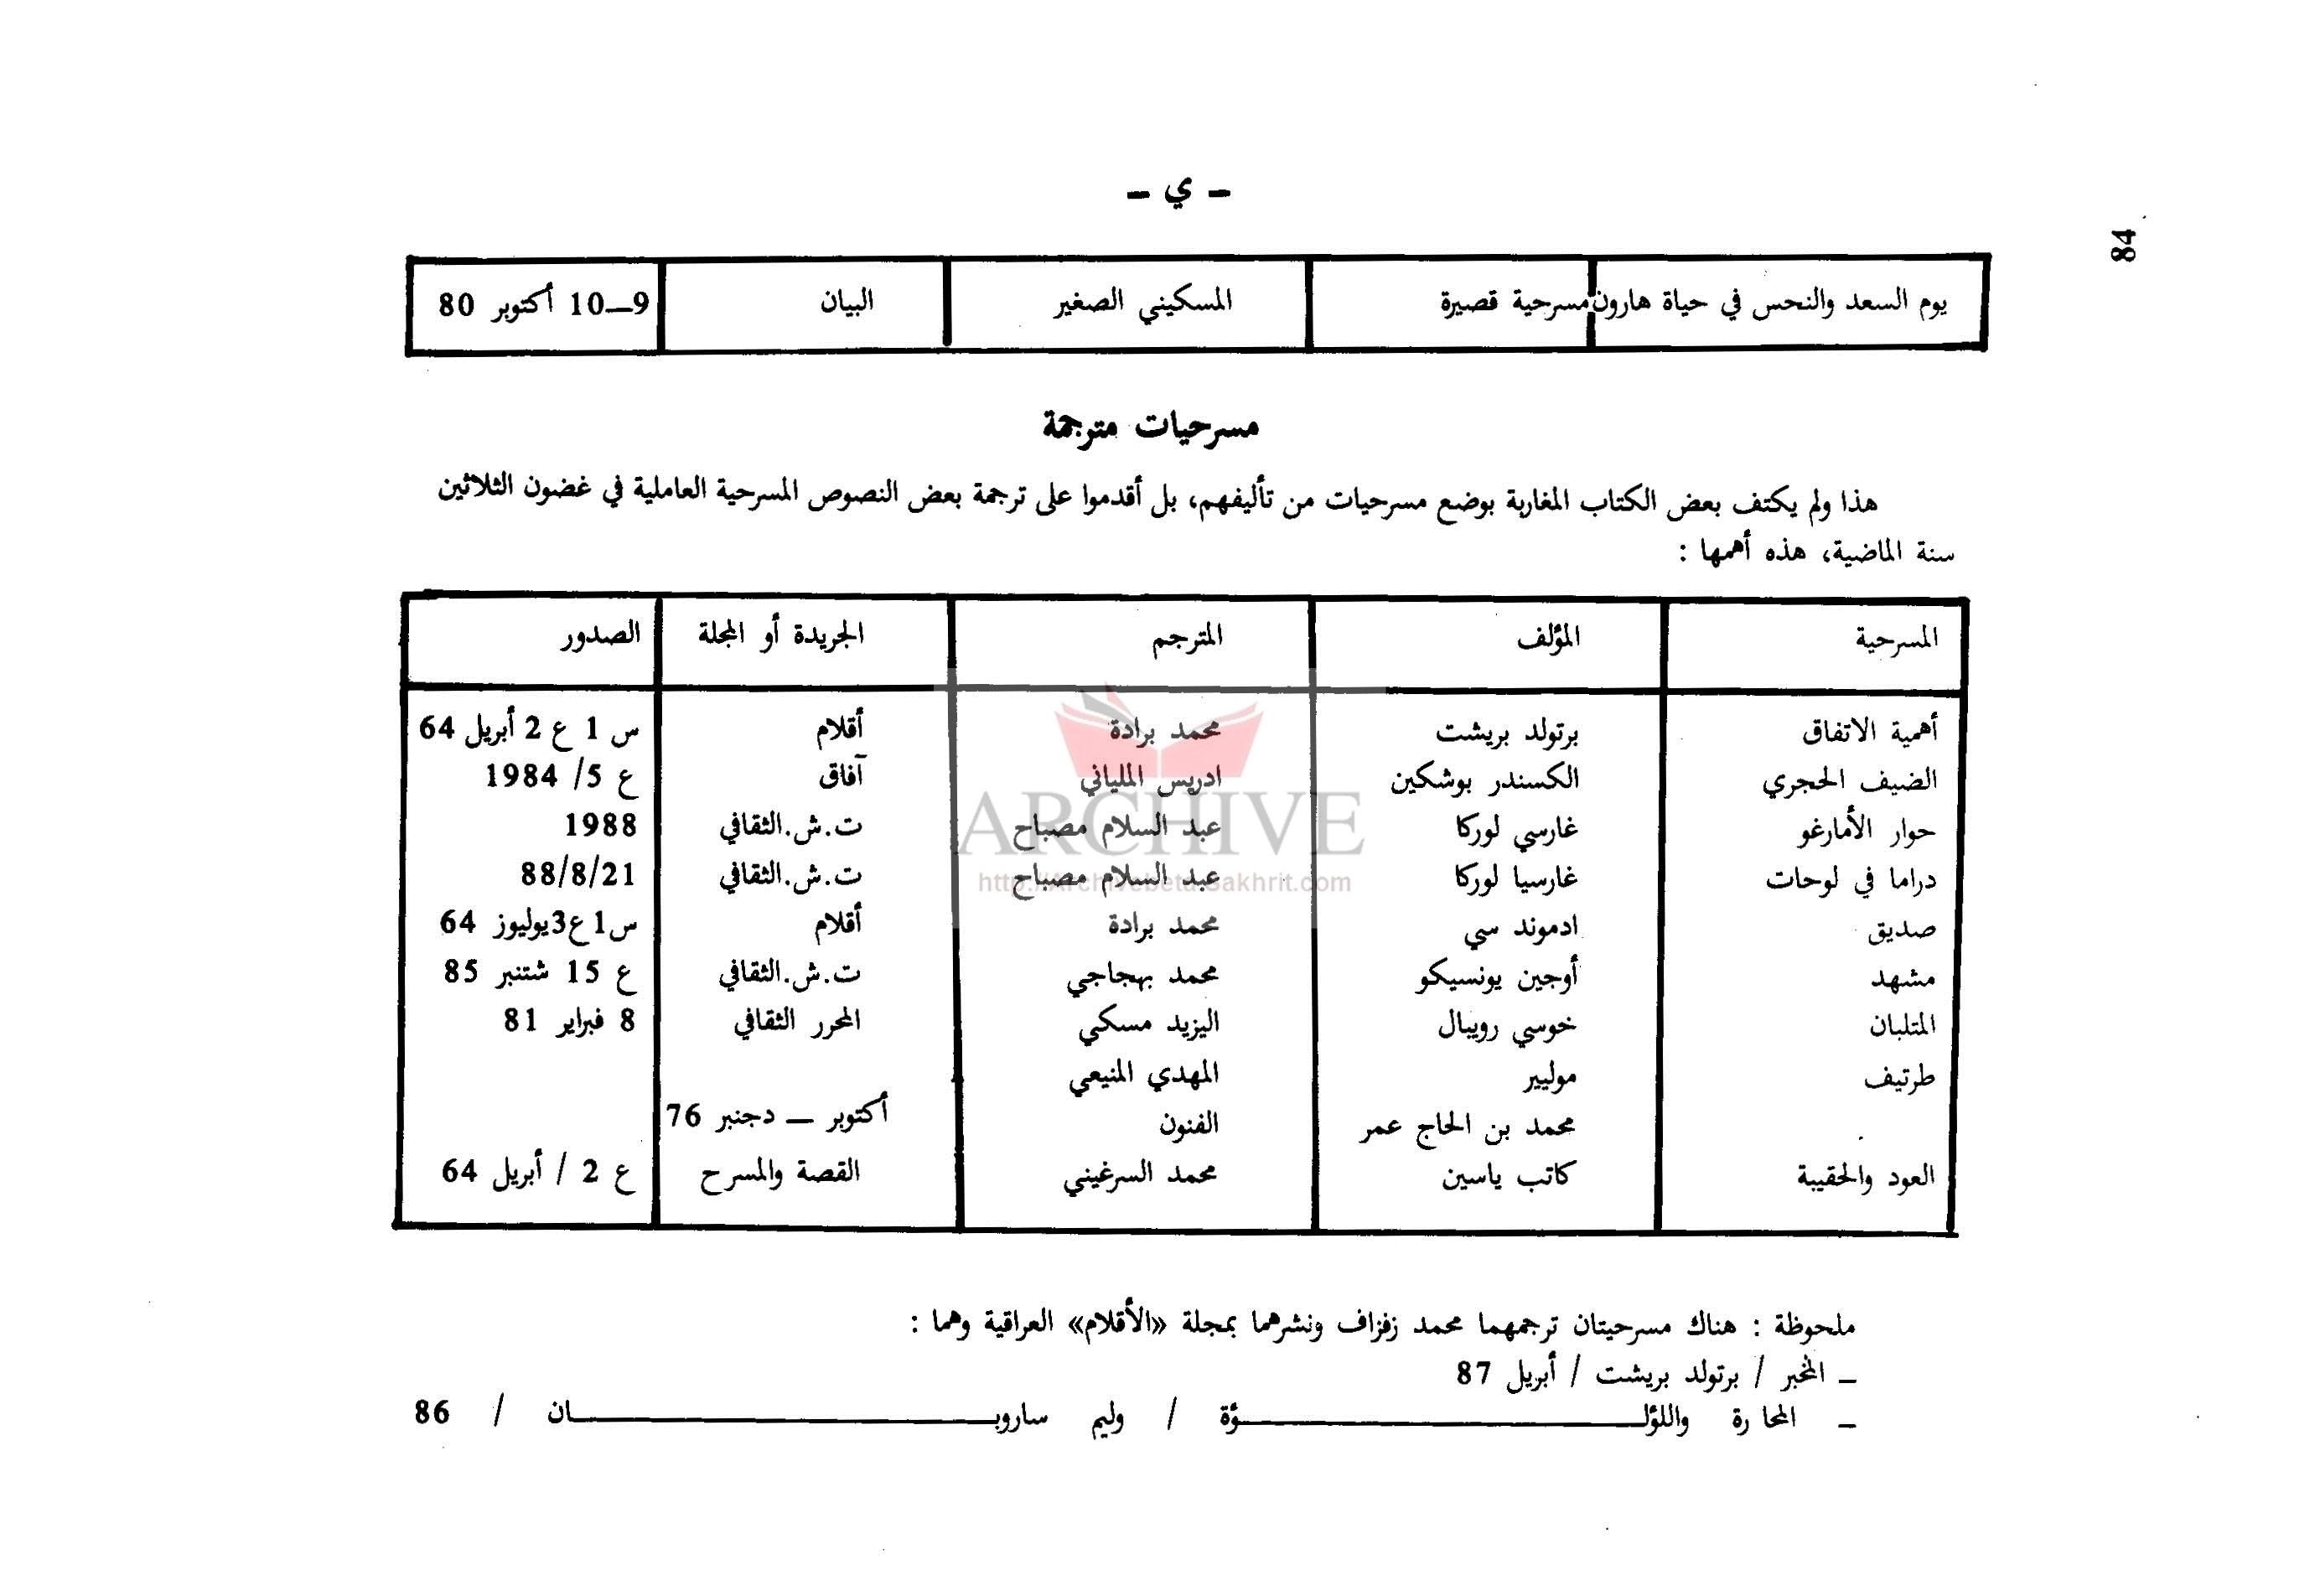 84
- ي -
يوم السعد والنحس في حياة هارون مسرحية قصيرة المسكيني الصغير البيان 9—10 أكتوبر 80
مسرحيات مترجمة
هذا ولم يكتف بعض الكتاب المغاربة بوضع مسرحيات من تأليفهم، بل أقدموا على ترجمة بعض النصوص المسرحية العاملية في غضون الثلاثين
سنة الماضية، هذه أهمها :
المسرحية المؤلف المترجم الجريدة أو المجلة الصدور
أهمية الاتفاق برتولد بريشت محمد برادة أقلام س 1 ع 2 أبريل 64
الضيف الحجري الكسندر بوشكين ادريس الملياني آفاق ع 5/ 1984
حوار الأمارغو غارسي لوركا عبد السلام مصباح ت.ش.الثقافي 1988
دراما في لوحات غارسيا لوركا عبد السلام مصباح ت.ش.الثقافي 88/8/21
صديق ادموند سي محمد برادة أقلام س1 ع3 يوليوز 64
مشهد أوجين يونسيكو محمد بهجاجي ت.ش.الثقافي ع 15 شتنبر 85
المتلبان خوسي روبيال اليزيد مسكي المحرر الثقافي 8 فبراير 81
طرتيف موليير المهدي المنيعي
محمد بن الحاج عمر الفنون أكتوبر — دجنبر 76
العود والحقيبة كاتب ياسين محمد السرغيني القصة والمسرح ع 2 / أبريل 64
ملحوظة : هناك مسرحيتان ترجمهما محمد زفزاف ونشرهما بمجلة «الأقلام» العراقية وهما :
— المخبر / برتولد بريشت / أبريل 87
— المحارة واللؤلـــؤة / وليم ساروبـــان / 86
ARCHIVE
http://Archivebeta.Sakhrit.com